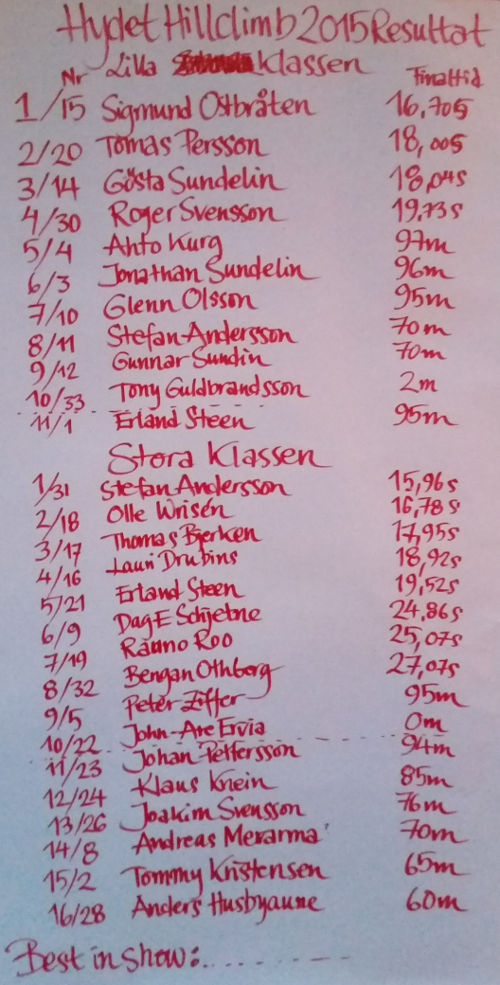 Hydet Hillclimb 2015 Resultat
Lilla Klassen
Nr Finaltid
1/15 Sigmund Ostbråten 16,70s
2/20 Tomas Persson 18,00s
3/14 Gösta Sundelin 18,04s
4/30 Roger Svensson 19,73s
5/4 Ahto Kurg 97m
6/3 Jonathan Sundelin 96m
7/10 Glenn Olsson 95m
8/11 Stefan Andersson 70m
9/12 Gunnar Sundin 70m
10/33 Tony Guldbrandsson 2m
11/1 Erland Steen 95m
Stora Klassen
1/31 Stefan Andersson 15,96s
2/18 Olle Wrisén 16,78s
3/17 Thomas Bjerken 17,95s
4/16 Lauri Drubins 18,92s
5/21 Erland Steen 19,52s
6/9 Dag E Schjetne 24,86s
7/19 Rauno Roo 25,07s
8/32 Bengan Othberg 27,07s
9/5 Peter Ziffer 95m
10/22 John-Are Ervia 0m
11/23 Johan Pettersson 94m
12/24 Klaus Knein 85m
13/26 Joakim Svensson 76m
14/8 Andreas 70m
15/2 Tommy Kristensen 65m
16/28 Anders Husbyaune 60m
Best in show:..........